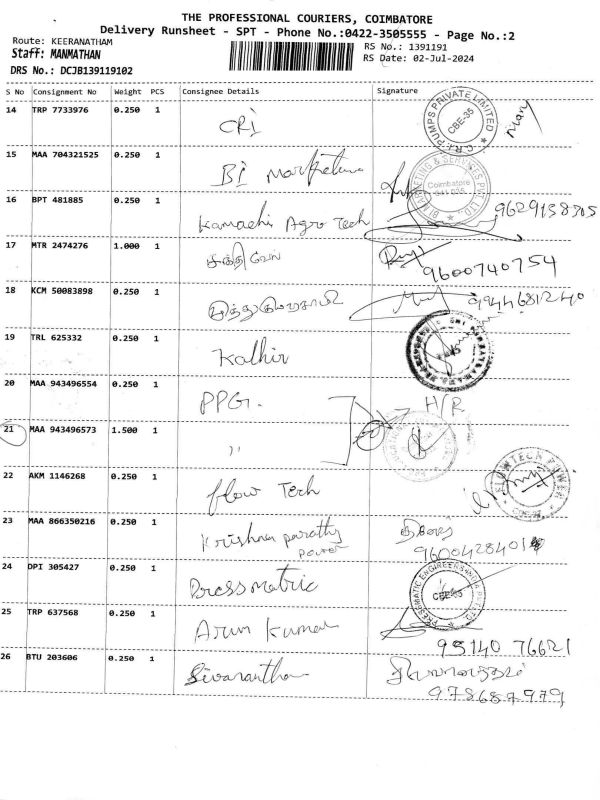 THE PROFESSIONAL COURIERS, COIMBATORE
Delivery Runsheet - SPT - Phone No.:0422-3505555 - Page No.:2
Route: KEERANATHAM
RS No.: 1391191
Staff: MANMATHAN
RS Date: 02-Jul-2024
DRS No.: DCJB139119102
S No Consignment No Weight PCS Consignee Details Signature
14 TRP 7733976 0.250 1
CRI
C.R.I. PUMPS PRIVATE LIMITED
CBE-35
15 MAA 704321525 0.250 1
BI
Coimbatore
641 035
16 BPT 481885 0.250 1
Kamachi Agro Tech
17 MTR 2474276 1.000 1
சக்தி வேல்
9600740754
18 KCM 50083898 0.250 1
19 TRL 625332 0.250 1
Kathir
20 MAA 943496554 0.250 1
PPG.
H/R
21 MAA 943496573 1.500 1
"
22 AKM 1146268 0.250 1
Flow Tech
FLOWTECH POWER
23 MAA 866350216 0.250 1
Krishna parathy
power
9600428401
24 DPI 305427 0.250 1
Pressmatric
CBE-35
25 TRP 637568 0.250 1
Arun Kumar
95140 76621
26 BTU 203606 0.250 1
Sivanantha
978687979